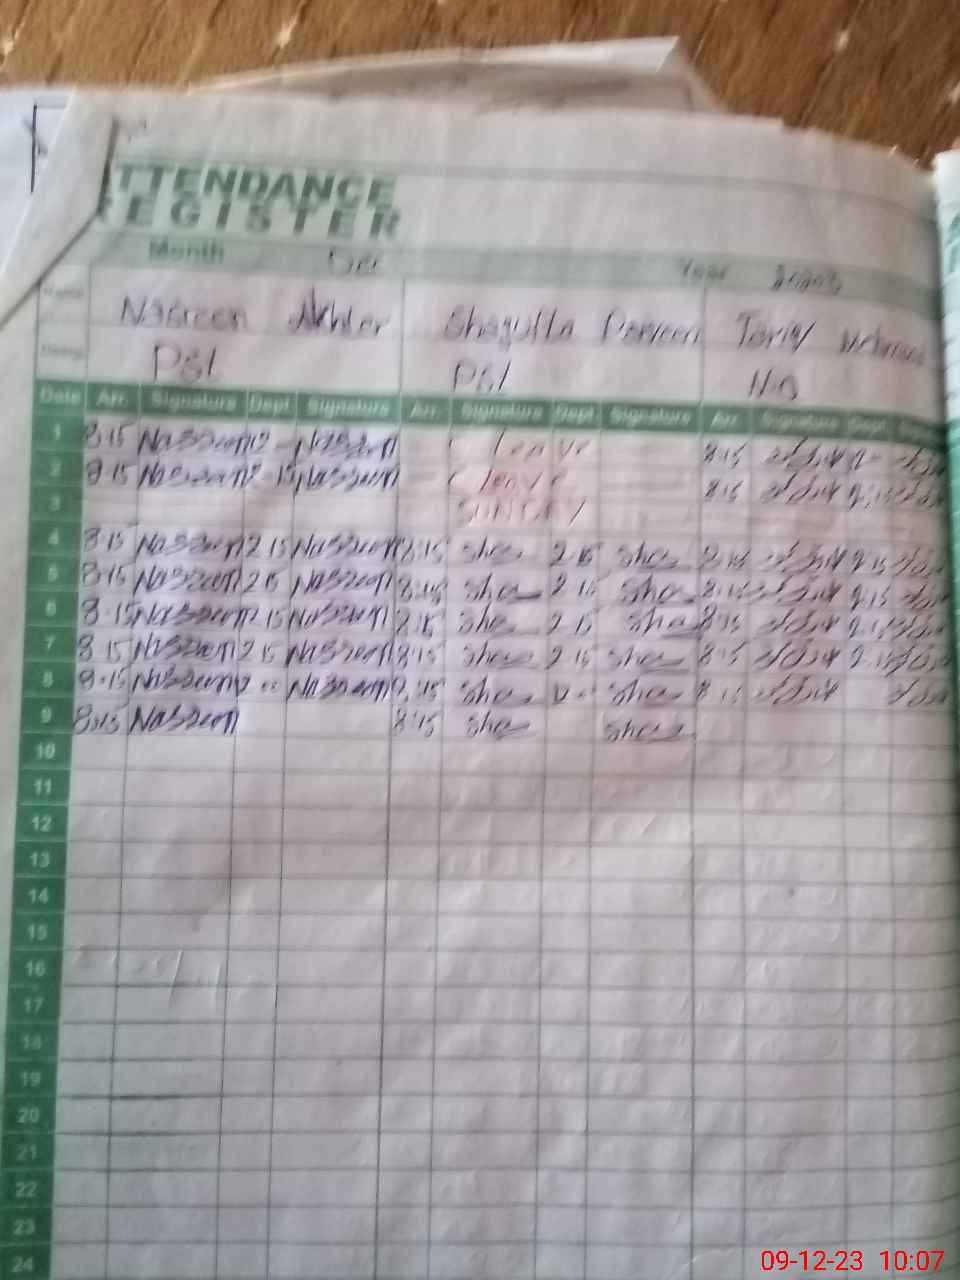 ATTENDANCE
REGISTER
Month Dec Year 2023
Name Nasreen Akhter Shagufta Parveen Tariq
Desig PST PST N.Q
Date Arr. Signature Dept. Signature Arr. Signature Dept. Signature Arr. Signature Dept.
1 8:15 Nasreen 12 Nasreen Leave 8:15
2 8:15 Nasreen Nasreen Leave 8:15
3 SUNDAY
4 8:15 Nasreen 2 15 Nasreen 8:15 Sha 2 15 Sha 8:15 2:15
5 8:15 Nasreen 2 15 Nasreen 8:15 Sha 2 15 Sha 8:15 2:15
6 8:15 Nasreen 2 15 Nasreen 8:15 Sha 2 15 Sha 8:15 2:15
7 8:15 Nasreen 2 15 Nasreen 8:15 Sha 2 15 Sha 8:15 2:15
8 8:15 Nasreen Nasreen 8:15 Sha 12 Sha 8:15
9 8:15 Nasreen 8:15 Sha Sha
10
11
12
13
14
15
16
17
18
19
20
21
22
23
24
09-12-23 10:07